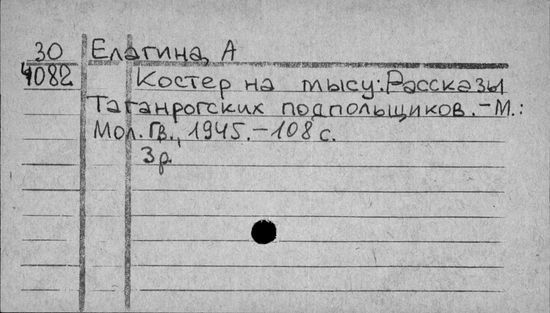 30 Елагина, А
4082 Костер на мысу: Рассказы
Таганрогских подпольщиков. – М.:
Мол. Гв., 1945. – 108 с.
3 р.